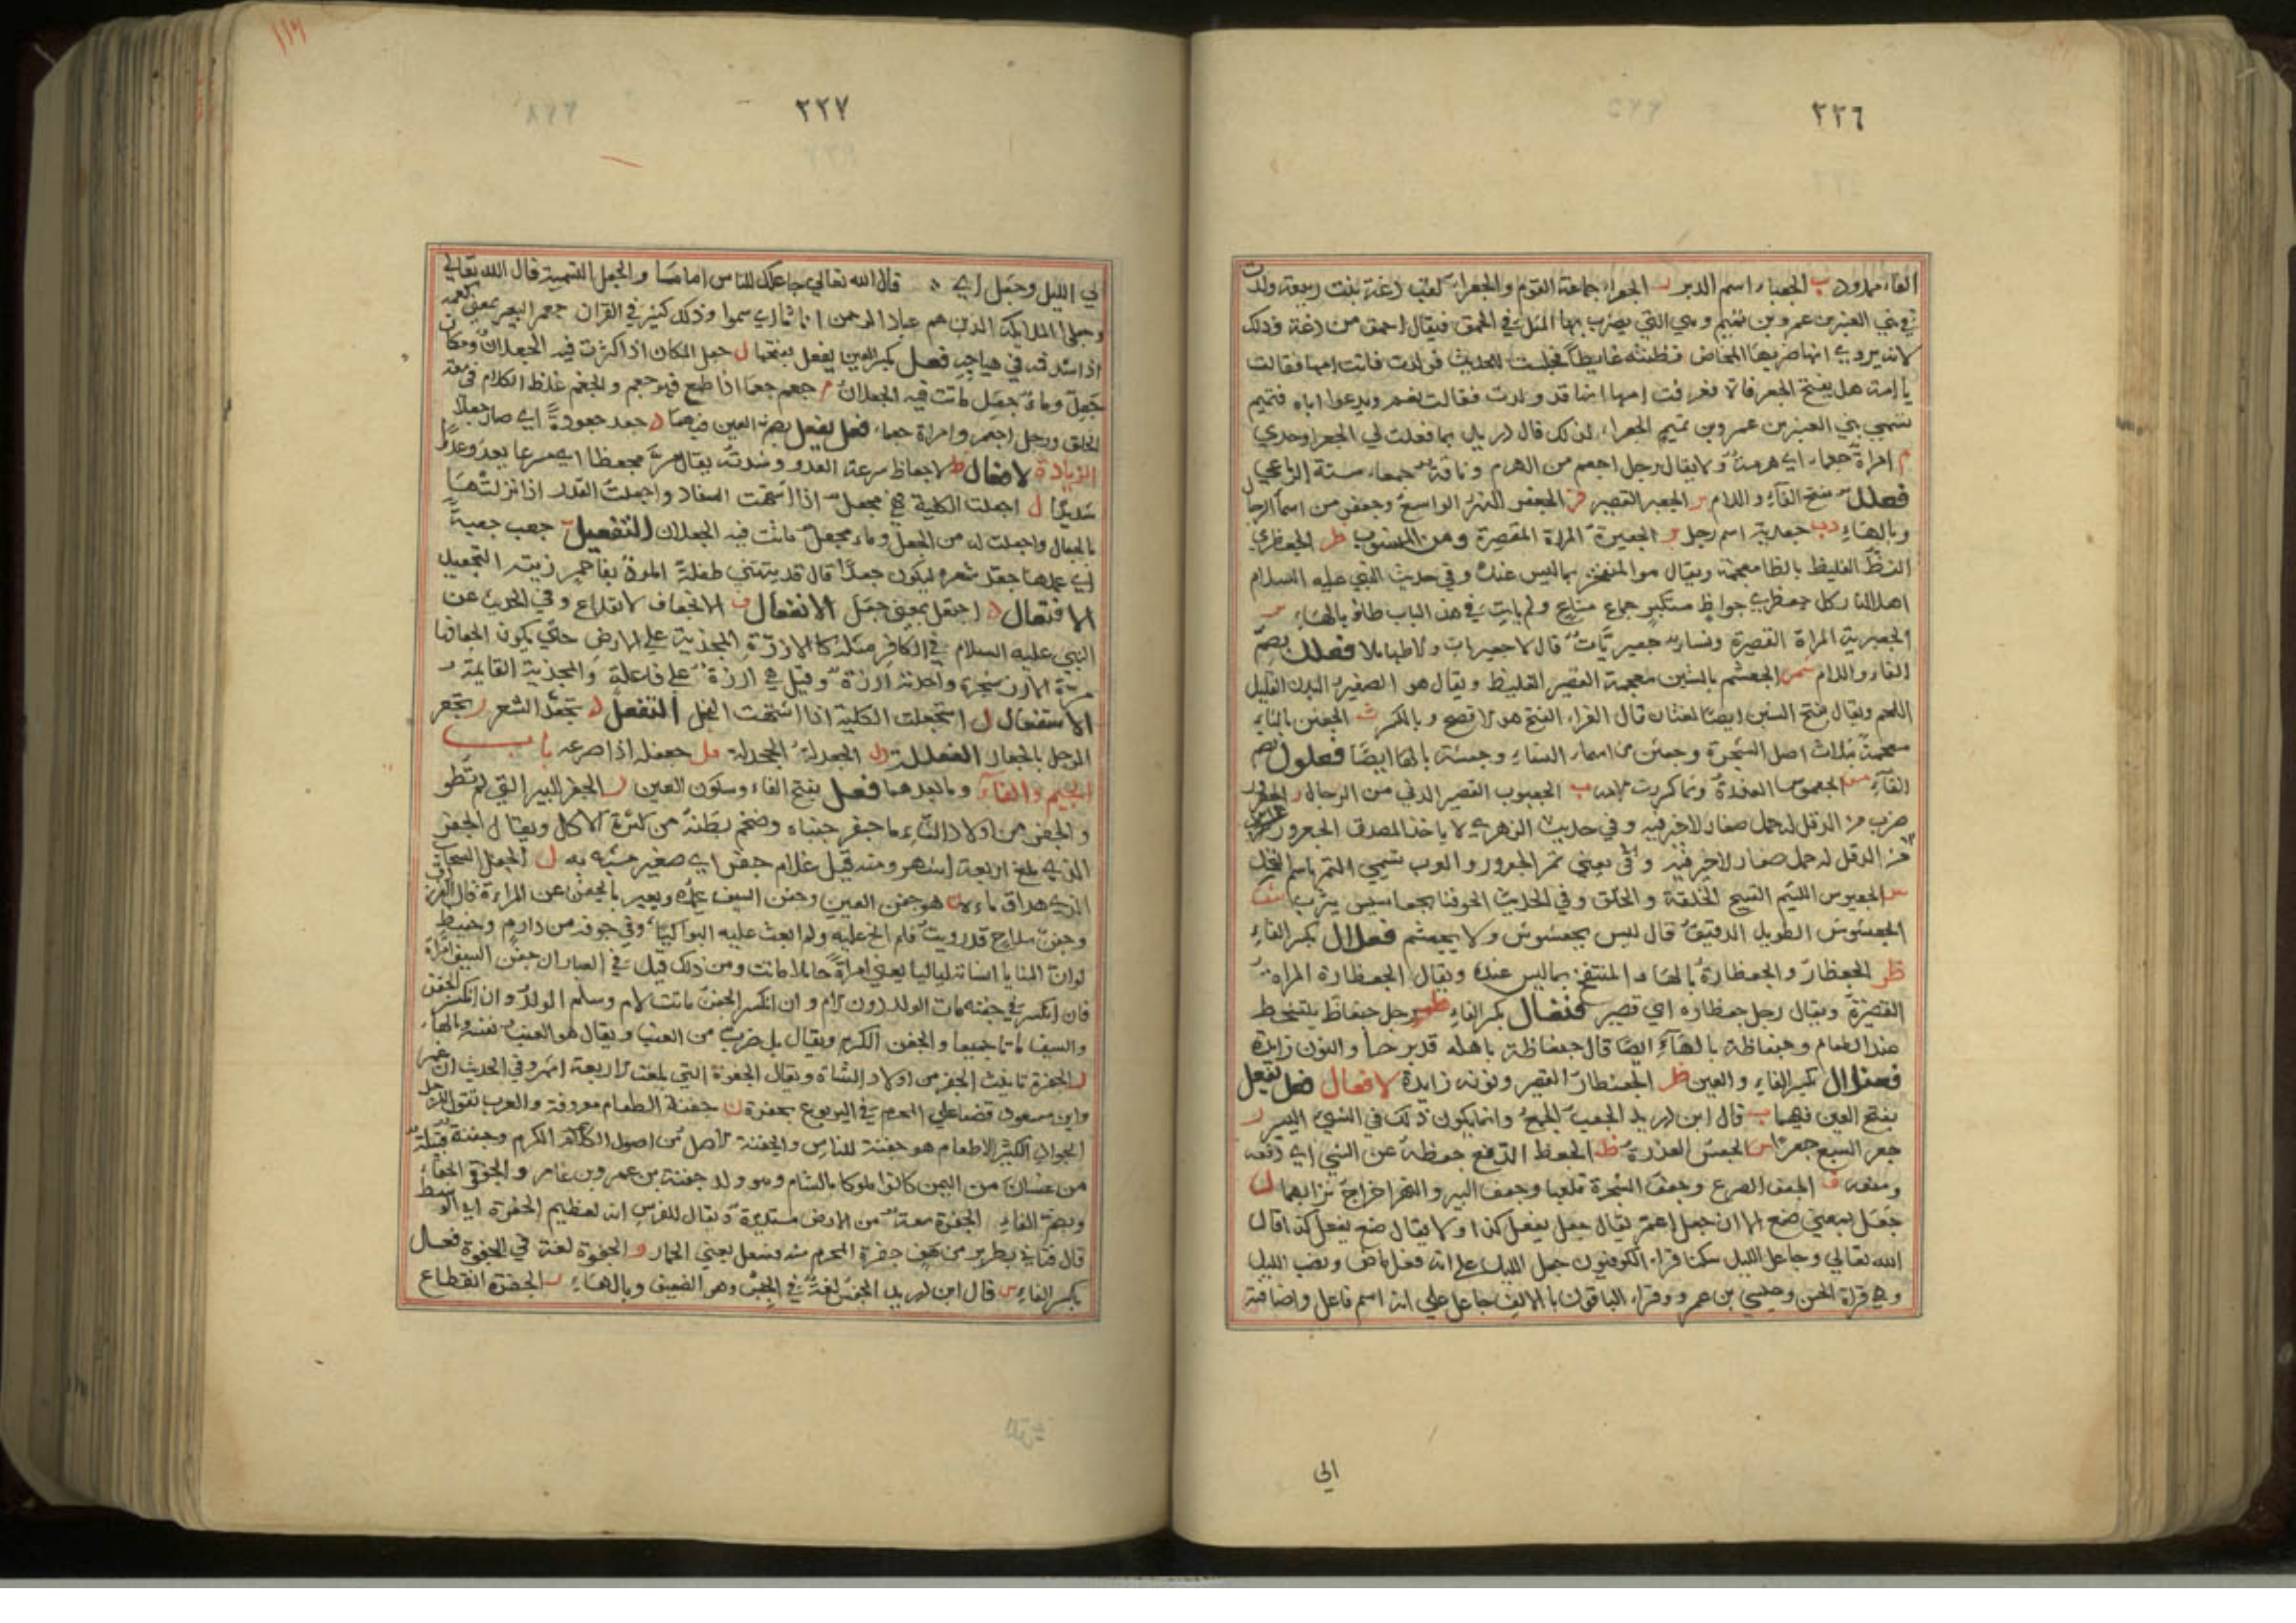 ٢٢٦
الفاء ممدود ب الجعباء اسم الدبر ر الجعراء جماعة القوم والجعراء لقب دغة بنت ربيعة ولدت
في بني العنبر بن عمرو بن تميم وهي التي يضرب بها المثل في الحمق فيقال احمق من دغة وذلك
لانه يروي انها ضربها المخاض فظنته غايطا فجلست للحدث فولدت فاتت امها فقالت
يا امت هل يفتح الجعر فاه فعرفت امها انها قد ولدت فقالت نعم ويدعوا اباه فتميم
بني العنبر بن عمرو بن تميم الجعراء لذلك قال دريد بما فعلت لي الجعرا وحدي
م امراة جعماء اي هرمة ولا يقال رجل اجعم من الهرم وناقة جعماء مسنة الرباعي
فعلل بفتح الفاء واللام ر الجعبر القصير ف الجعفر النهر الواسع وجعفر من اسما الرجال
وبالهاء دب جعدبة اسم رجل ر الجعبرة المراة القصيرة ومن المنسوب ظر الجعظري
الفظ الغليظ بالظا معجمة ويقال هو المنتفخ بما ليس عنده وفي حديث النبي عليه السلام
اهل النار كل جعظري جواظ مستكبر جماع مناع ولم يات في هذا الباب طاو بالهاء
الجعبرية المراة القصيرة ونساء جعبريات قال لا جعبريات ولا طهاملا فعلل بضم
الفاء واللام شم الجعشم بالشين معجمة القصير الغليظ ويقال هو الصغير البدن القليل
اللحم ويقال بفتح الشين ايضا لغتان قال الفراء الفتح هو افصح وبالكسر ث الجعثن بالثاء
معجمة بثلاث اصل الشجرة وجعثن من اسماء النساء وجعثنة بالها ايضا فعلول بضم
الفاء مس الجعموس العذرة ب الجعبوب القصير الدني من الرجال ر الجعرور
ضرب من الدقل له حمل صغار لا خير فيه وفي حديث الزهري لا ياخذ المصدق الجعرور
من الدقل له حمل صغار لا خير فيه يعني تمر الجعرور والعرب تسمي التمر باسم النخل
س الجعبوس اللئيم القبيح الخلقة والخلق وفي الحديث بجعاسيس يثرب
الجعشوش الطويل الدقيق قال ليس بجعشوش ولا بجعشم فعلال بكسر الفاء
ظر الجعظار والجعظارة بالهاء المنتفخ بما ليس عنده ويقال الجعظارة المراة
القصيرة ويقال رجل جعظارة اي قصير فنعال بكسر الفاء ظ رجل جنعاظ يتسخط
عند الطعام وجنعاظة بالهاء ايضا قال جنعاظة باهله قد برحا والنون زايدة
فعنلال بكسر الفاء والعين ظر الجعنظار القصير ونونه زايدة الافعال فعل يفعل
بفتح العين فيهما ب قال ابن دريد الجعب الجمع وانما يكون ذلك في الشيء اليسير ر
جعر السبع جعرا س الجعس العذرة ظ الجعظ الدفع جعظه عن الشي اي دفعه
ومنعه ف الجعف الصرع وجعف الشجرة قلعها وجعف البير والنهر اخراج ترابهما ل
جعل بمعنى صنع الا ان جعل اعم يقال جعل يفعل كذا ولا يقال صنع يفعل كذا قال
الله تعالي وجاعل الليل سكنا قراء الكوفيون جعل الليل على انه فعل ماض ونصب الليل
وهي قراة الحسن وعيسي بن عمرو وقراء الباقون بالالف جاعل علي انه اسم فاعل واضافته
الى
٢٢٧
الي الليل وجعل اي قال الله تعالي جاعلك للناس اماما والجعل التسمية قال الله تعالي
وجعلوا الملايكة الذين هم عباد الرحمن اناثا اي سموا وذلك كثير في القران جعم البعير بمعنى كعمه
اذا شد فمه في هياجه فعل بكسر العين يفعل بفتحها ل جعل المكان اذا كثرت فيه الجعلان ومكان
جعل وماء جعل ماتت فيه الجعلان م جعم جعما اذا طمع فهو جعم والجعم غلظ الكلام في سعة
الحلق ورجل اجعم وامراة جعماء فعل يفعل بضم العين فيهما د جعد جعودة اي صار جعدا
الزيادة الافعال ظ الاجعاظ سرعة العدو وشدته يقال مر مجعظا اي مسرعا يعدو عدوا
شديدا ل اجعلت الكلبة فهي مجعل اذا اشتهت السفاد واجعلت القدر اذا نزلتها
بالجعال واجعلت له من الجعل وماء مجعل ماتت فيه الجعلان التفعيل ب جعب جعبة
اي عملها جعد شعره ليكون جعدا قال قد يتمتني طفلة املود بفاحم زينه التجعيد
الافتعال ل اجتعل بمعنى جعل الانفعال ف الانجعاف الانقلاع وفي الحديث عن
النبي عليه السلام في الكافر مثله كالارزة المجذية علي الارض حتى يكون انجعافها
مرة الارز شجر واحدته ارزة وقيل هي ارزة على فاعلة والمجذية القايمة
الاستفعال ل استجعلت الكلبة اذا اشتهت الفحل التفعل د تجعد الشعر ر تجعر
الرجل بالجعار الفعللة دل الجعدلة الجحدلة فل جعفله اذا صرعه باب
الجيم والفاء وما بعدهما فعل بفتح الفاء وسكون العين ر الجفر البير التي لم تطو
والجفر من اولاد الشاء ما جفر جنباه وضخم بطنه من كثرة الاكل ويقال الجفر
الذي بلغ اربعة اشهر ومنه قيل غلام جفر اي صغير مشبه به ل الجفل السحاب
الذي هراق ماءه ن هو جفن العين وجفن السيف غمده ويعبر بالجفن عن المراة قال الفرزدق
وجفن سلاح قد رزيت فلم انح عليه ولم ابعث عليه البواكيا وفي جوفه من دارم ذو حفيظة
لو ان المنايا انساته لياليا يعني امراة حاملا ماتت ومن ذلك قيل في العبارة ان جفن السيف امراة
فان انكسر في جفنه مات الولد دون الام وان انكسر الجفن ماتت الام وسلم الولد وان انكسر الجفن
والسيف ماتا جميعا والجفن الكرم ويقال بل ضرب من العنب ويقال هو العنب نفسه وبالهاء
ر الجفرة تانيث الجفر من اولاد الشاة ويقال الجفرة التي بلغت اربعة اشهر وفي الحديث ان عمر
وابن مسعود قضيا علي المحرم في اليربوع بجفرة ن جفنة الطعام معروفة والعرب تقول للرجل
الجواد الكثير الاطعام هو جفنة للناس والجفنة اصل من اصول الكرم وجفنة قبيلة
من غسان من اليمن كانوا ملوكا بالشام وهو ولد جفنة بن عمرو بن عامر و الجفوة الجفاء
وبضم الفاء الجفرة سعة من الارض مستديرة ويقال للفرس انه لعظيم الجفرة اي الوسط
قال جفرة المحرم منه فسعل يعني الحمار و الجفوة لغة في الجفوة فعل
بكسر الفاء س قال ابن دريد الجفس لغة في الجبس وهو الضعيف وبالهاء ر الجفرة انقطاع